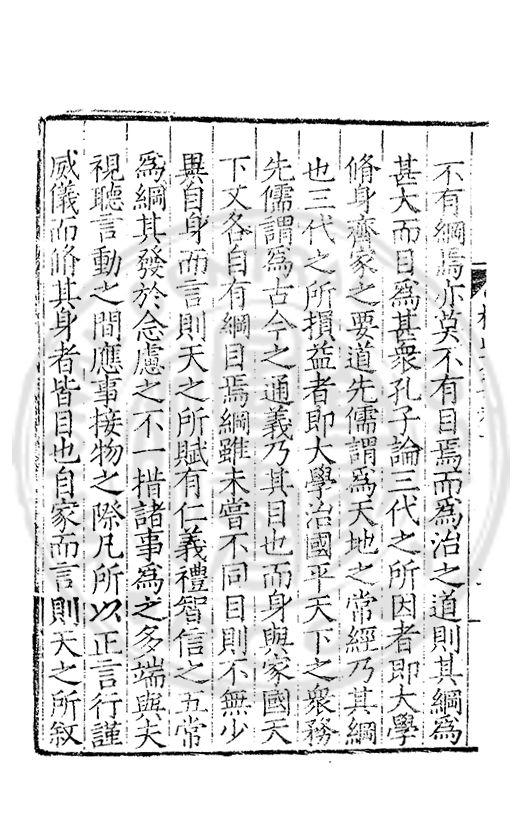 不有綱焉亦莫不有目焉而爲治之道則其綱爲
甚大而目爲甚衆孔子論三代之所因者即大學
脩身齊家之要道先儒謂爲天地之常經乃其綱
也三代之所損益者即大學治國平天下之衆務
先儒謂爲古今之通義乃其目也而身與家國天
下又各自有綱目焉綱雖未嘗不同目則不無少
異自身而言則天之所賦有仁義禮智信之五常
爲綱其發於念慮之不一措諸事爲之多端與夫
視聽言動之間應事接物之際凡所以正言行謹
威儀而脩其身者皆目也自家而言則天之所叙